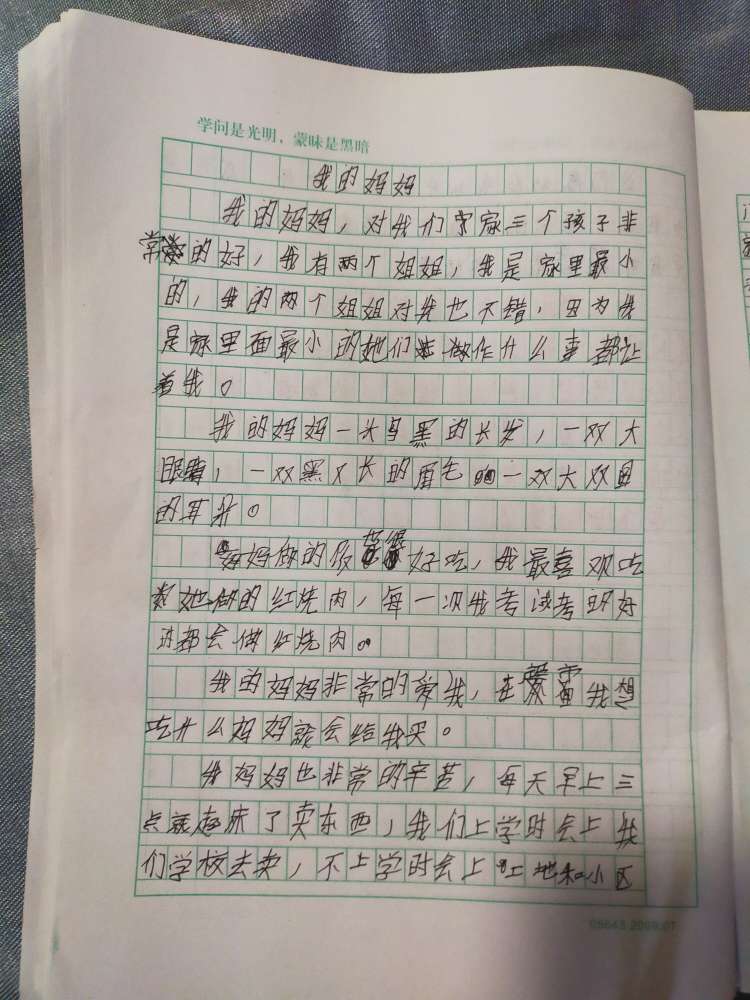 学问是光明，蒙昧是黑暗
我的妈妈
我的妈妈，对我们家三个孩子非
常的好，我有两个姐姐，我是家里最小
的，我的两个姐姐对我也不错，因为我
是家里面最小的她们做作什么事都让
着我。
我的妈妈一头乌黑的长发，一双大
眼睛，一双黑又长的眉毛一双大双
的耳朵。
妈妈做的饭菜很好吃，我最喜欢吃
她做的红烧肉，每一次我考试考的好
时都会做红烧肉。
我的妈妈非常的爱我，在家里我想
吃什么妈妈就会给我买。
我妈妈也非常的辛苦，每天早上三
点就起床了卖东西，我们上学时会上我
们学校去卖，不上学时会上工地和小区
05645 2009.07